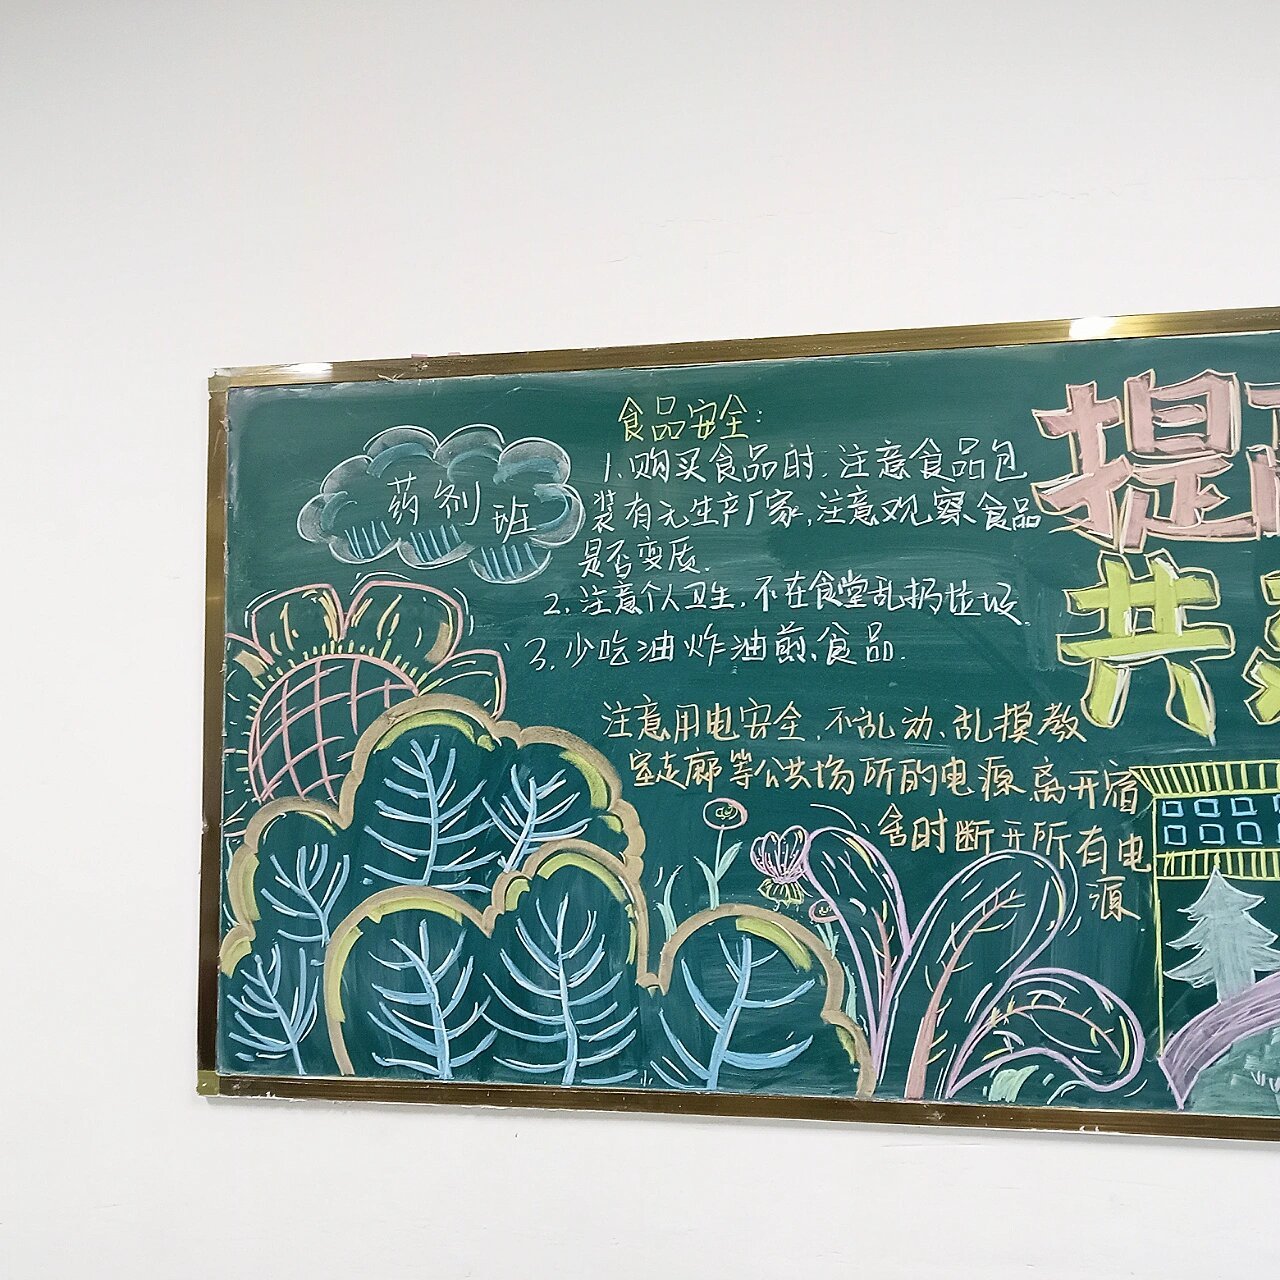 药剂班
食品安全:
1.购买食品时,注意食品包
装有无生产厂家,注意观察食品
是否变质.
2.注意个人卫生,不在食堂乱扔垃圾.
3.少吃油炸油煎食品.
注意用电安全,不乱动、乱摸教
室走廊等公共场所的电源,离开宿
舍时断开所有电
源
提
共